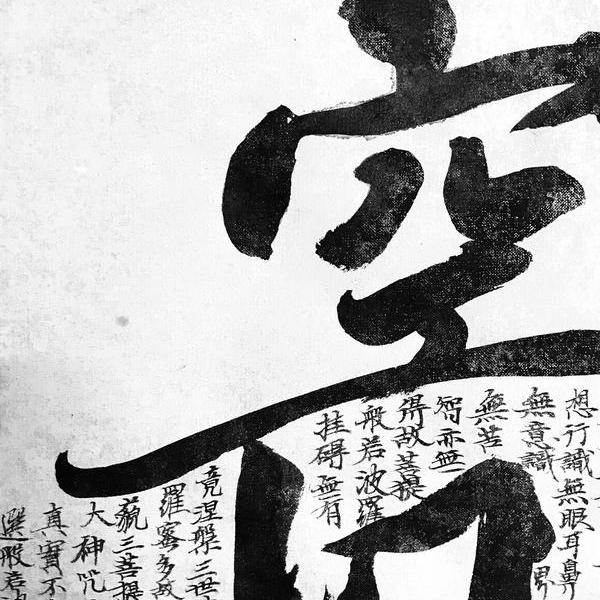 空
想行識無眼耳鼻
無意識界
無苦
智亦無
得故菩提
般若波羅
挂礙無有
竟涅槃三世
羅蜜多故
藐三菩提
大神咒
真實不
般若